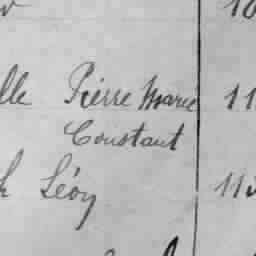 lle Pierre Marie 11
Constant
Léon 11